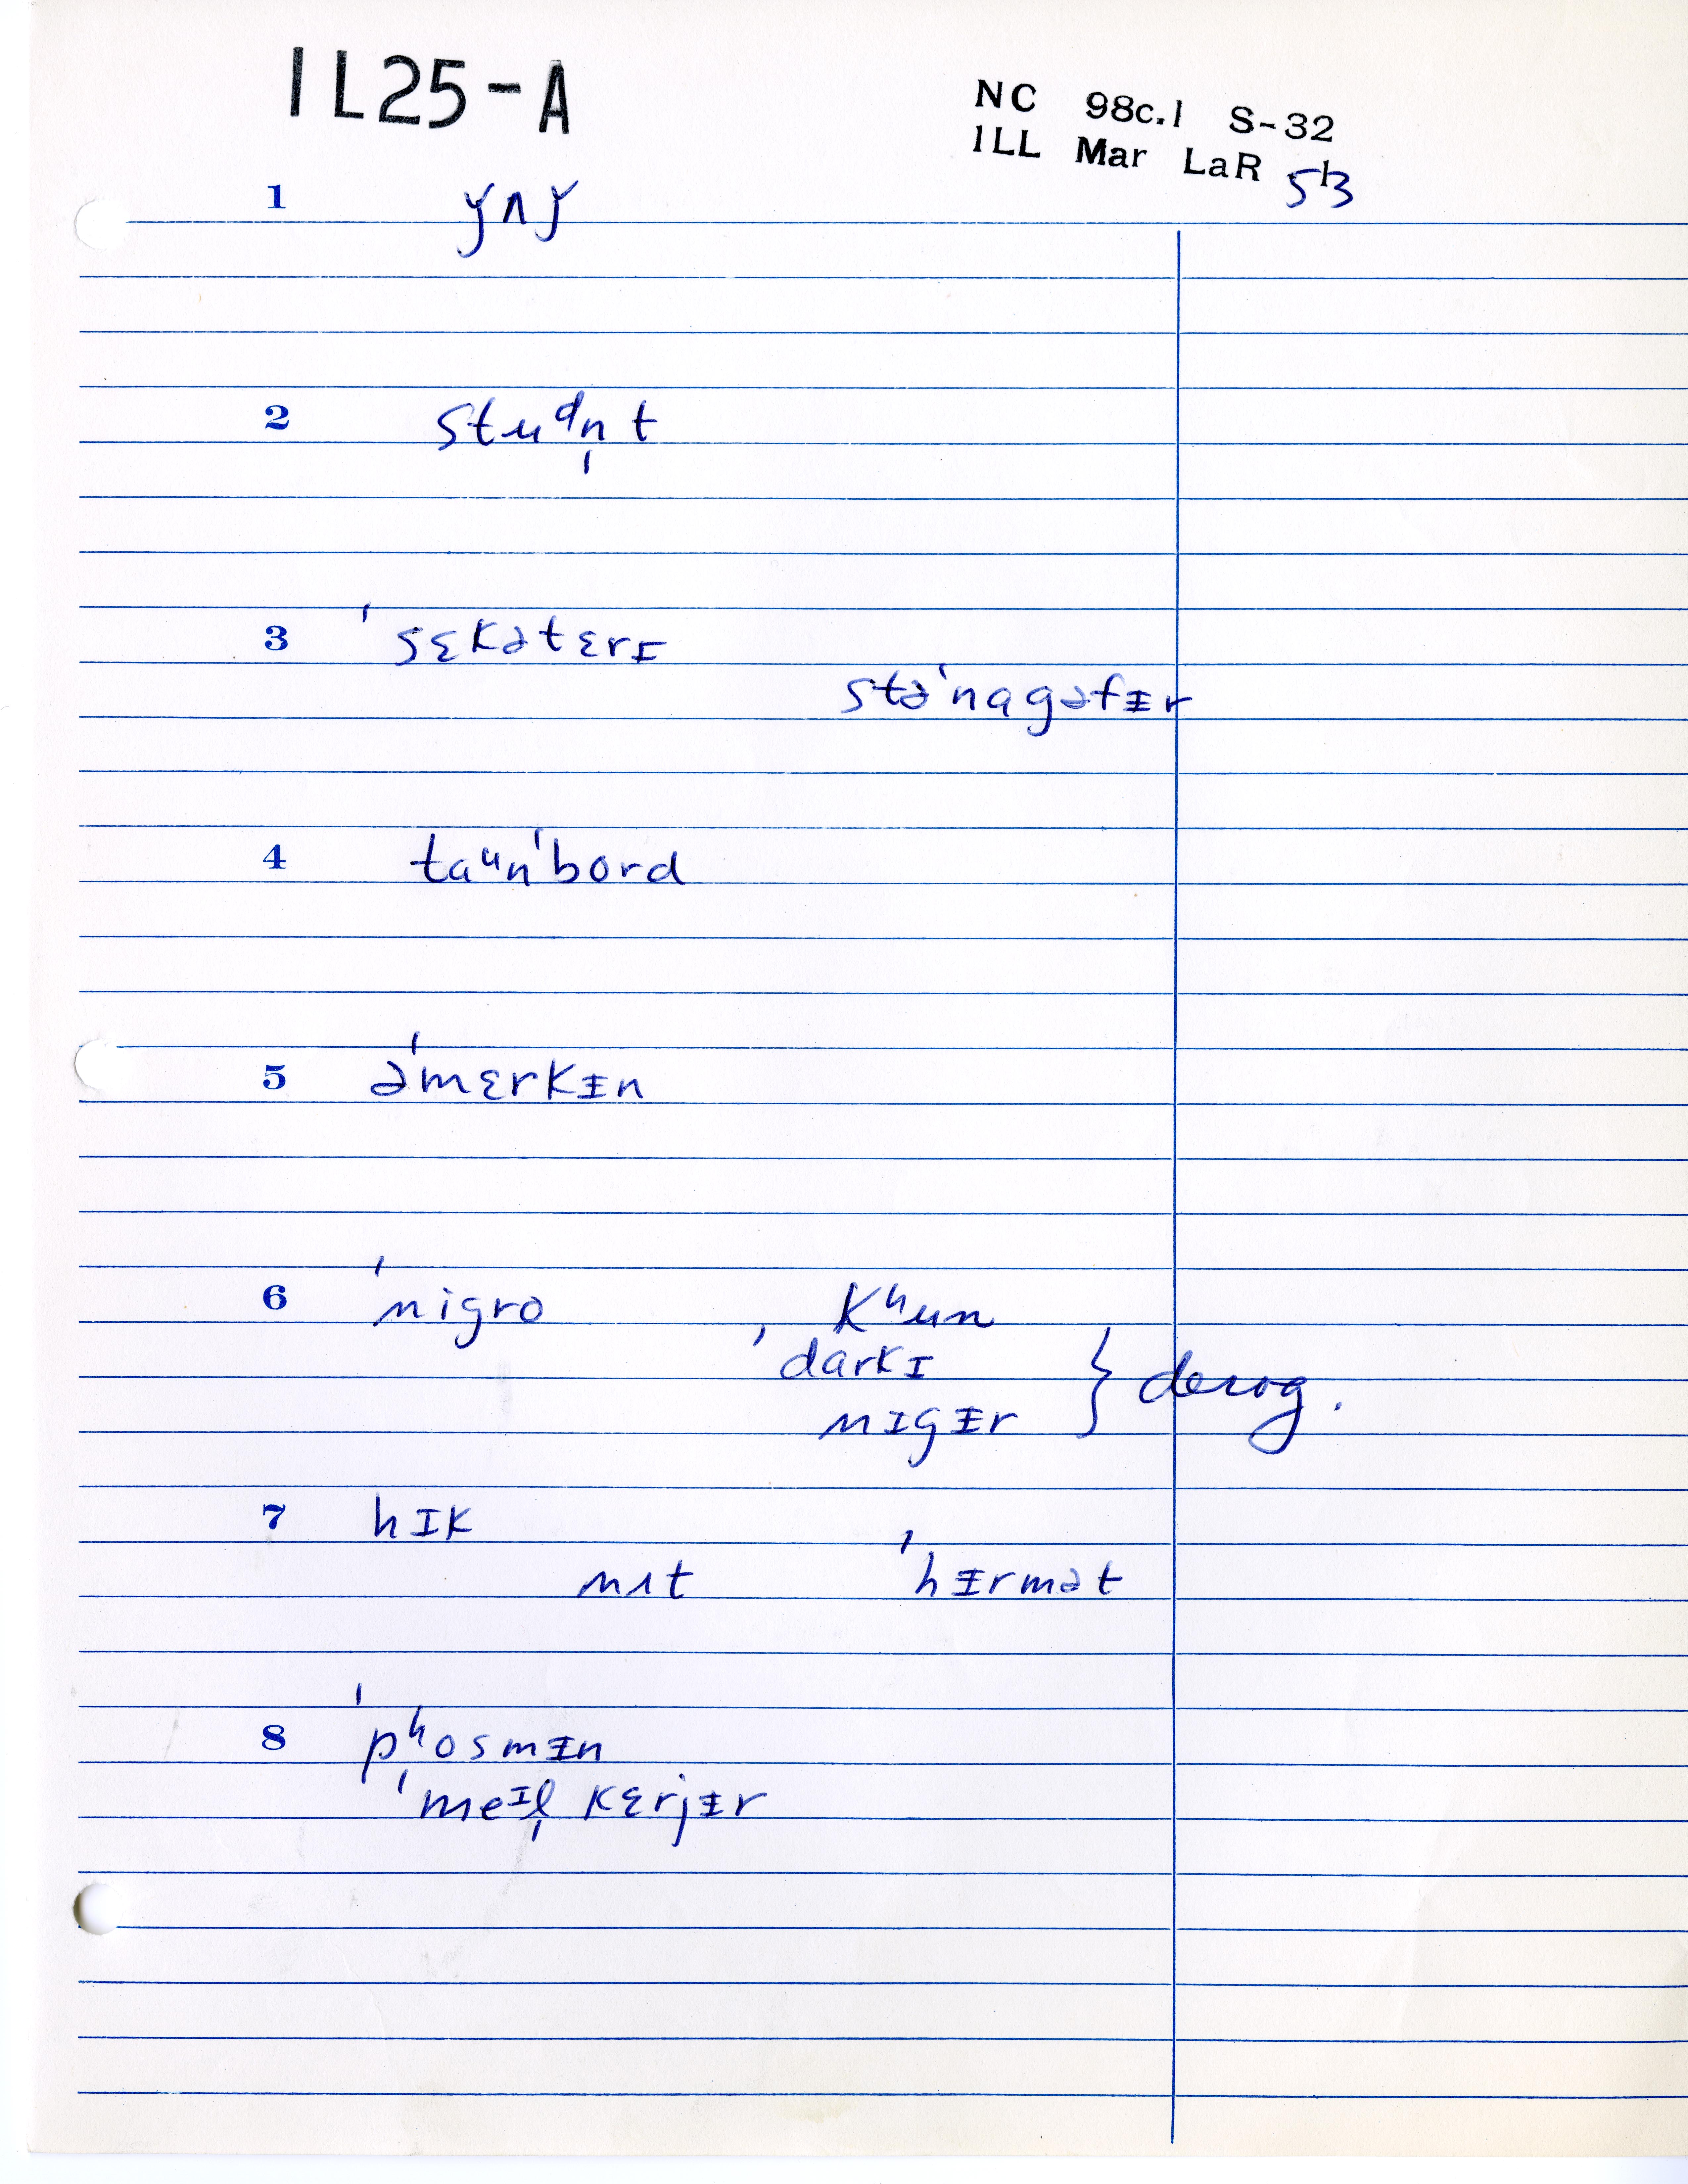 IL25-A
NC 98c.1 S-32
ILL Mar LaR 513
1 ɟʌɟ
2 stuᵈn̩t
3 ˈsɛkətɛrɪ
stəˈnagəfɪ̵r
4 taᵘnˈbord
5 əˈmɛrkɪ̵n
6 ˈnigro kʰun
ˈdarkɪ } derog.
nɪgɪ̵r
7 hɪk
nɪt ˈhɪ̵rmət
8 ˈpʰosmɪ̵n
ˈmeᶦl̩ kɛrjɪ̵r